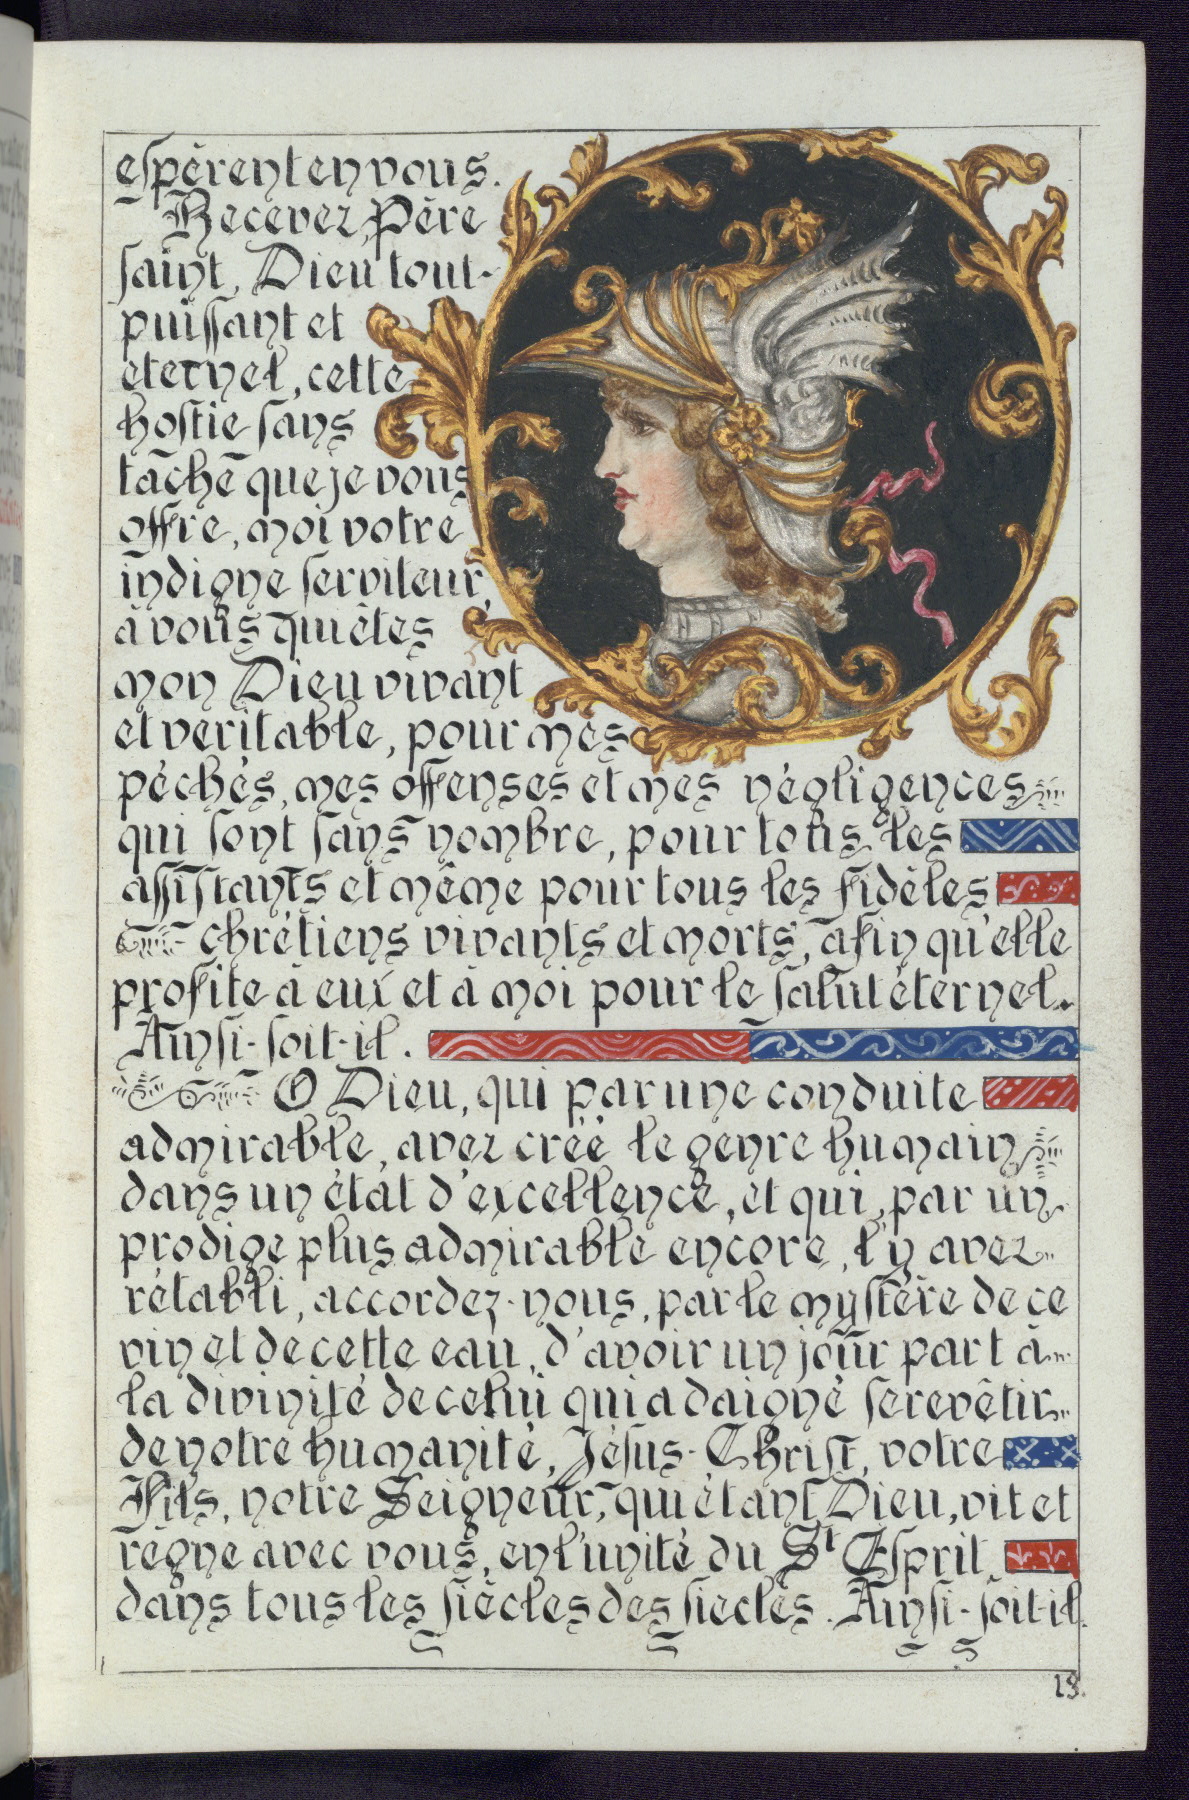 espèrent en vous.
Recevez, Père
saint, Dieu tout-
puissant et
eternel, cette
hostie sans
tache que je vous
offre, moi votre
indigne serviteur,
à vous qui êtes
mon Dieu vivant
et veritable, pour mes
péchés, mes offenses et mes négligences
qui sont sans nombre, pour tous les
assistants et même pour tous les fidèles
chrétiens vivants et morts, afin qu'elle
profite à eux et à moi pour le salut éternel.
Ainsi-soit-il.
O Dieu, qui par une conduite
admirable, avez créé le genre humain
dans un état d'excellence, et qui, par un
prodige plus admirable encore, l'y avez
rétabli, accordez-nous, par le mystère de ce
vin et de cette eau, d'avoir un jour part à
la divinité de celui qui a daigné se revêtir
de notre humanité, Jésus-Christ, votre
Fils, notre Seigneur, qui étant Dieu, vit et
règne avec vous, en l'unité du St Esprit,
dans tous les siècles des siecles. Ainsi-soit-il.
18.